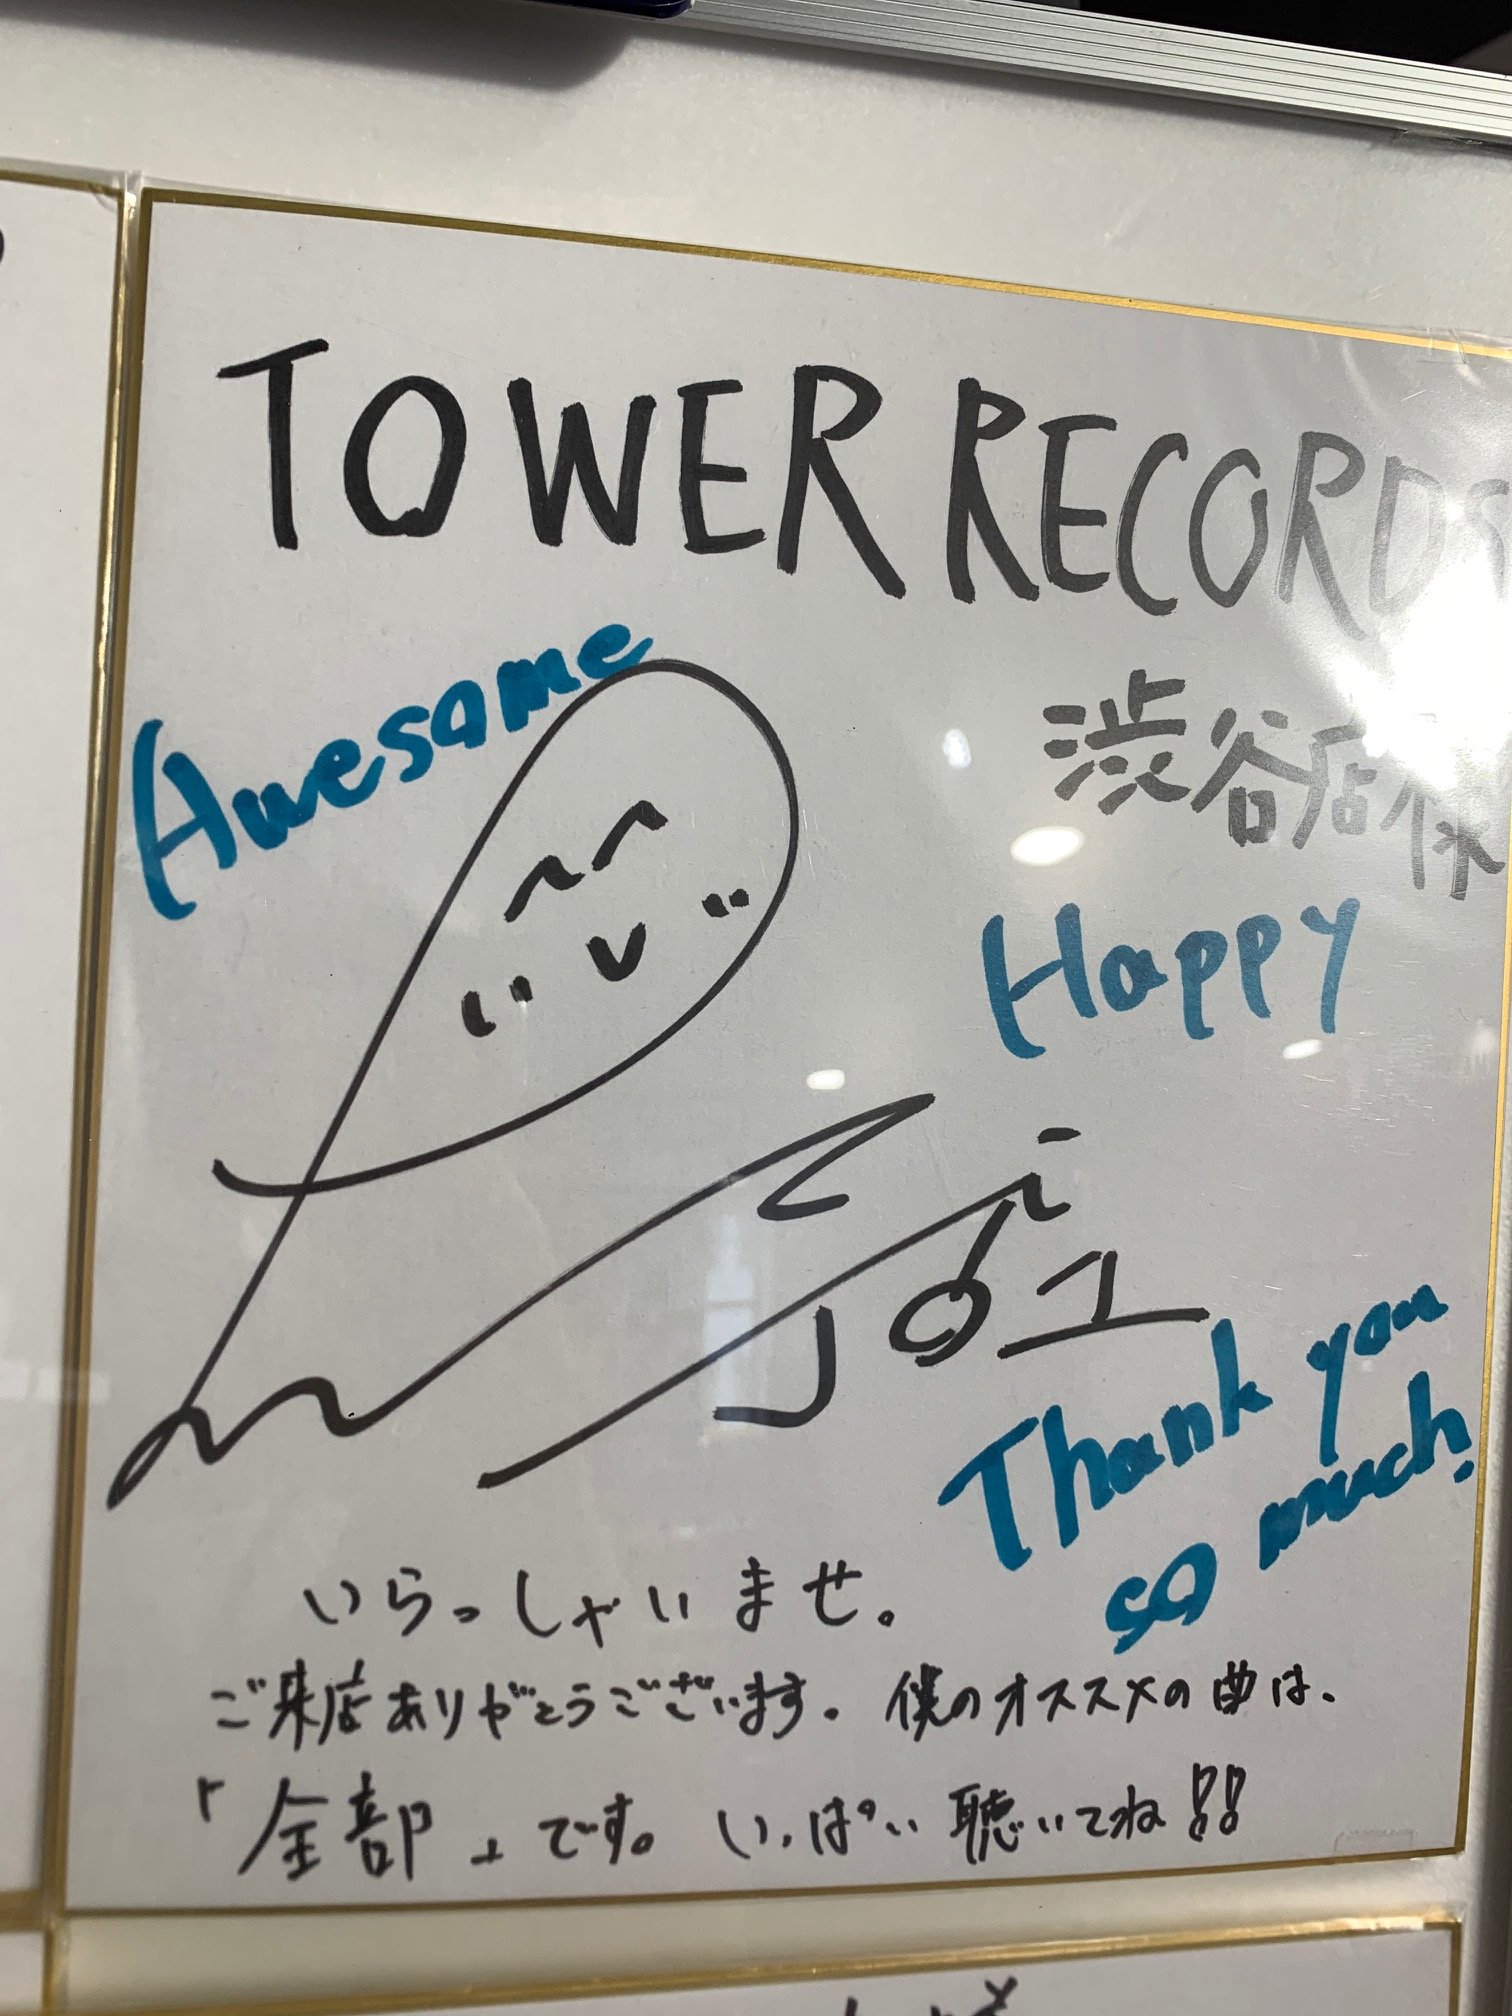 TOWER RECORDS
渋谷店様
Awesome
Happy
Thank you
so much.
いらっしゃいませ。
ご来店ありがとうございます。僕のオススメの曲は、
「全部」です。いっぱい聴いてね!!